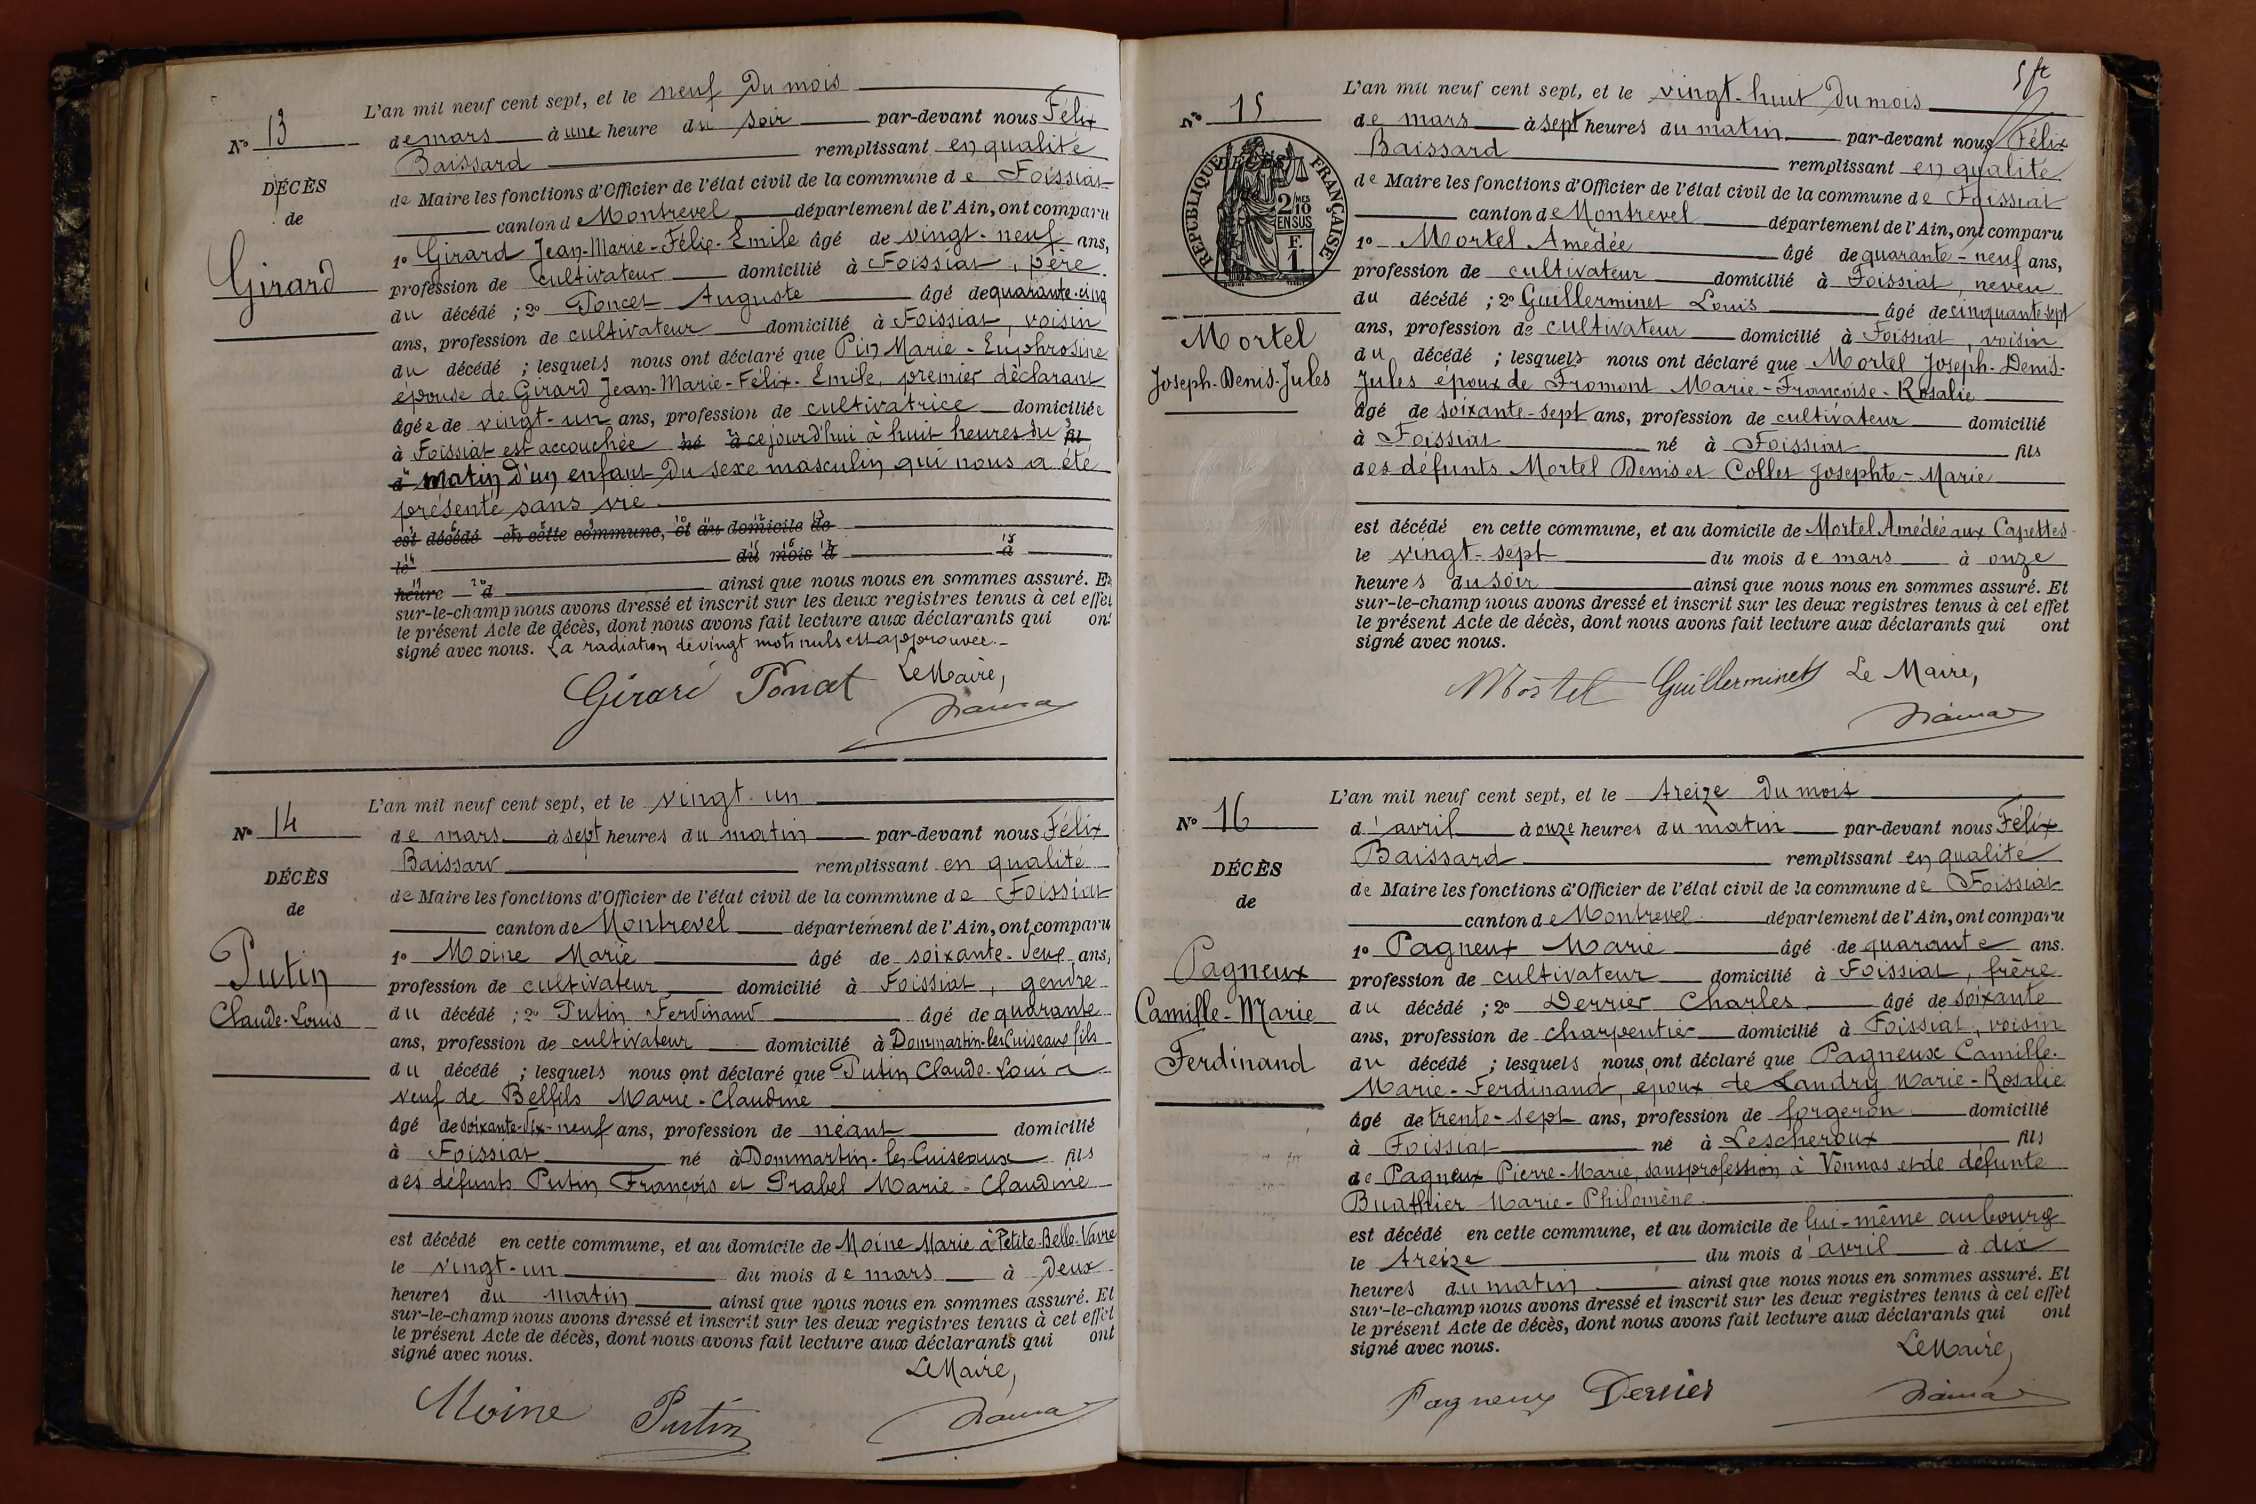 L'an mil neuf cent sept, et le neuf du mois
N° 13
de mars à une heure du soir par-devant nous Félix
Baissard remplissant en qualité
DÉCÈS
de Maire les fonctions d'Officier de l'état civil de la commune de Foissiat
de
canton de Montrevel département de l'Ain, ont comparu
1° Girard Jean-Marie-Félix-Emile âgé de vingt-neuf ans,
Girard
profession de cultivateur domicilié à Foissiat, père
du décédé ; 2° Poncet Auguste âgé de quarante-cinq
ans, profession de cultivateur domicilié à Foissiat, voisin
du décédé ; lesquels nous ont déclaré que Pin Marie-Euphrosine
épouse de Girard Jean-Marie-Félix-Emile, premier déclarant
âgée de vingt-un ans, profession de cultivatrice domiciliée
à Foissiat est accouchée né à cejourd'hui à huit heures du fil
d matin d'un enfant du sexe masculin qui nous a été
présenté sans vie
est décédé en cette commune, et au domicile de
le du mois d à
heure d ainsi que nous nous en sommes assuré. Et
sur-le-champ nous avons dressé et inscrit sur les deux registres tenus à cet effet
le présent Acte de décès, dont nous avons fait lecture aux déclarants qui ont
signé avec nous. La radiation de vingt mots nuls est approuvée.-
Girard Poncet Le Maire,
L'an mil neuf cent sept, et le vingt-un
N° 14
de mars à sept heures du matin par-devant nous Félix
Baissard remplissant en qualité
DÉCÈS
de Maire les fonctions d'Officier de l'état civil de la commune de Foissiat
de
canton de Montrevel département de l'Ain, ont comparu
1° Moine Marie âgé de soixante-deux ans,
Putin
profession de cultivateur domicilié à Foissiat, gendre
Claude-Louis
du décédé ; 2° Putin Ferdinand âgé de quarante
ans, profession de cultivateur domicilié à Dommartin-les-Cuiseaux fils
du décédé ; lesquels nous ont déclaré que Putin Claude-Louis
veuf de Belfils Marie-Claudine
âgé de soixante-dix-neuf ans, profession de néant domicilié
à Foissiat né à Dommartin-les-Cuiseaux fils
des défunts Putin François et Prabel Marie-Claudine
est décédé en cette commune, et au domicile de Moine Marie à Petite-Belle-Vavre
le vingt-un du mois de mars à deux
heures du matin ainsi que nous nous en sommes assuré. Et
sur-le-champ nous avons dressé et inscrit sur les deux registres tenus à cet effet
le présent Acte de décès, dont nous avons fait lecture aux déclarants qui ont
signé avec nous.
Le Maire,
Moine Putin
L'an mil neuf cent sept, et le vingt-huit du mois
N° 15
de mars à sept heures du matin par-devant nous Félix
Baissard remplissant en qualité
DÉCÈS
RÉPUBLIQUE FRANÇAISE
2/10 MES
EN SUS
F.
1
de Maire les fonctions d'Officier de l'état civil de la commune de Foissiat
canton de Montrevel département de l'Ain, ont comparu
1° Mortel Amédée âgé de quarante-neuf ans,
profession de cultivateur domicilié à Foissiat, neveu
du décédé ; 2° Guillerminet Louis âgé de cinquante-sept
Mortel
ans, profession de cultivateur domicilié à Foissiat, voisin
Joseph-Denis-Jules
du décédé ; lesquels nous ont déclaré que Mortel Joseph-Denis-
Jules époux de Fromont Marie-Françoise-Rosalie
âgé de soixante-sept ans, profession de cultivateur domicilié
à Foissiat né à Foissiat fils
des défunts Mortel Denis et Collet Josephte-Marie
est décédé en cette commune, et au domicile de Mortel Amédée aux Capettes
le vingt-sept du mois de mars à onze
heures du soir ainsi que nous nous en sommes assuré. Et
sur-le-champ nous avons dressé et inscrit sur les deux registres tenus à cet effet
le présent Acte de décès, dont nous avons fait lecture aux déclarants qui ont
signé avec nous.
Mortel Guillerminet Le Maire,
L'an mil neuf cent sept, et le treize du mois
N° 16
d'avril à onze heures du matin par-devant nous Félix
Baissard remplissant en qualité
DÉCÈS
de Maire les fonctions d'Officier de l'état civil de la commune de Foissiat
de
canton de Montrevel département de l'Ain, ont comparu
1° Pagneux Marie âgé de quarante ans.
Pagneux
profession de cultivateur domicilié à Foissiat, frère
Camille-Marie
du décédé ; 2° Derrier Charles âgé de soixante
ans, profession de charpentier domicilié à Foissiat, voisin
Ferdinand
du décédé ; lesquels nous ont déclaré que Pagneux Camille-
Marie-Ferdinand, époux de Landry Marie-Rosalie
âgé de trente-sept ans, profession de forgeron domicilié
à Foissiat né à Lescheroux fils
de Pagneux Pierre-Marie, sans profession à Vonnas et de défunte
Buathier Marie-Philomène
est décédé en cette commune, et au domicile de lui-même au bourg
le treize du mois d'avril à dix
heures du matin ainsi que nous nous en sommes assuré. Et
sur-le-champ nous avons dressé et inscrit sur les deux registres tenus à cet effet
le présent Acte de décès, dont nous avons fait lecture aux déclarants qui ont
signé avec nous.
Le Maire,
Pagneux Derrier